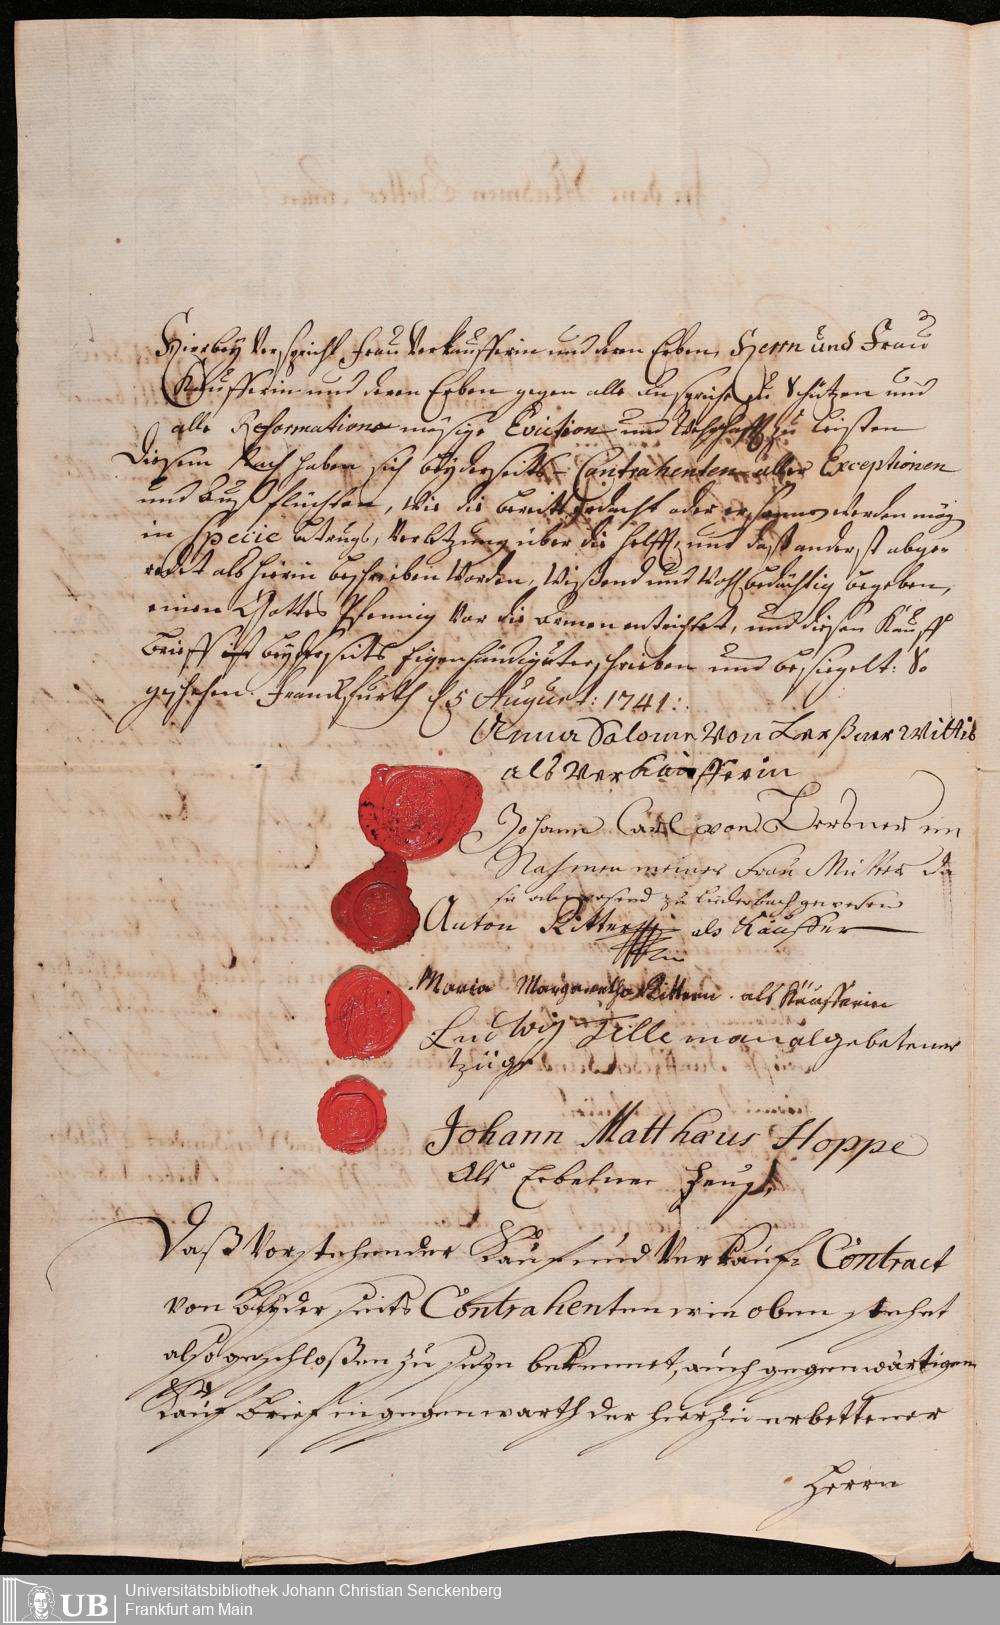 Hierbey Verspricht Frau Verkäufferin und deren Erben, Herrn und Frau
Käufferin und deren Erben gegen alle ansprüche zu Schützen und
alle Reformations mäsige Eviction und Wehrschafft zu leisten
Diesem Nach haben sich beyderseits Contrahenten aller Exceptionen
und Auß flüchten, wie die bereits erdacht oder ersonnen werden mög
in Specie betrugs, Verletzung über die helfft, und daß anderst abge-
redet als hierin beschrieben worden, Wißend und Wohlbedächtig begeben,
einen Gottes Pfennig Vor die Armen entrichtet, und diesen Kauff
Brieff beyderseits Eigenhändig unterschrieben und besiegelt: So
geschehen. Franckfurth d 5 August: 1741:
Anna Salome Von Lerßner Wittib
als Verkaufferin
Johann Carl von Lersner im
Nahmen meiner Frau Mutter da
sie abwesend zu Liederbach gewesen
Anton Ritter als Käuffer
Maria Margaretha Rittern als Käufferin
Ludwig Tilleman als gebetener
Johann Matthæus Hoppe
Als Erbetner Zeug,
Daß Vorstehender Kauf und Verkaufs Contract
von Beyderseits Contrahenten wie oben stehet
also geschloßen zu seyn bekennet, auch gegenwärtigen
Kauf Brief in gegenwarth der hierzu erbettener
Herrn
UB
Universitätsbibliothek Johann Christian Senckenberg
Frankfurt am Main